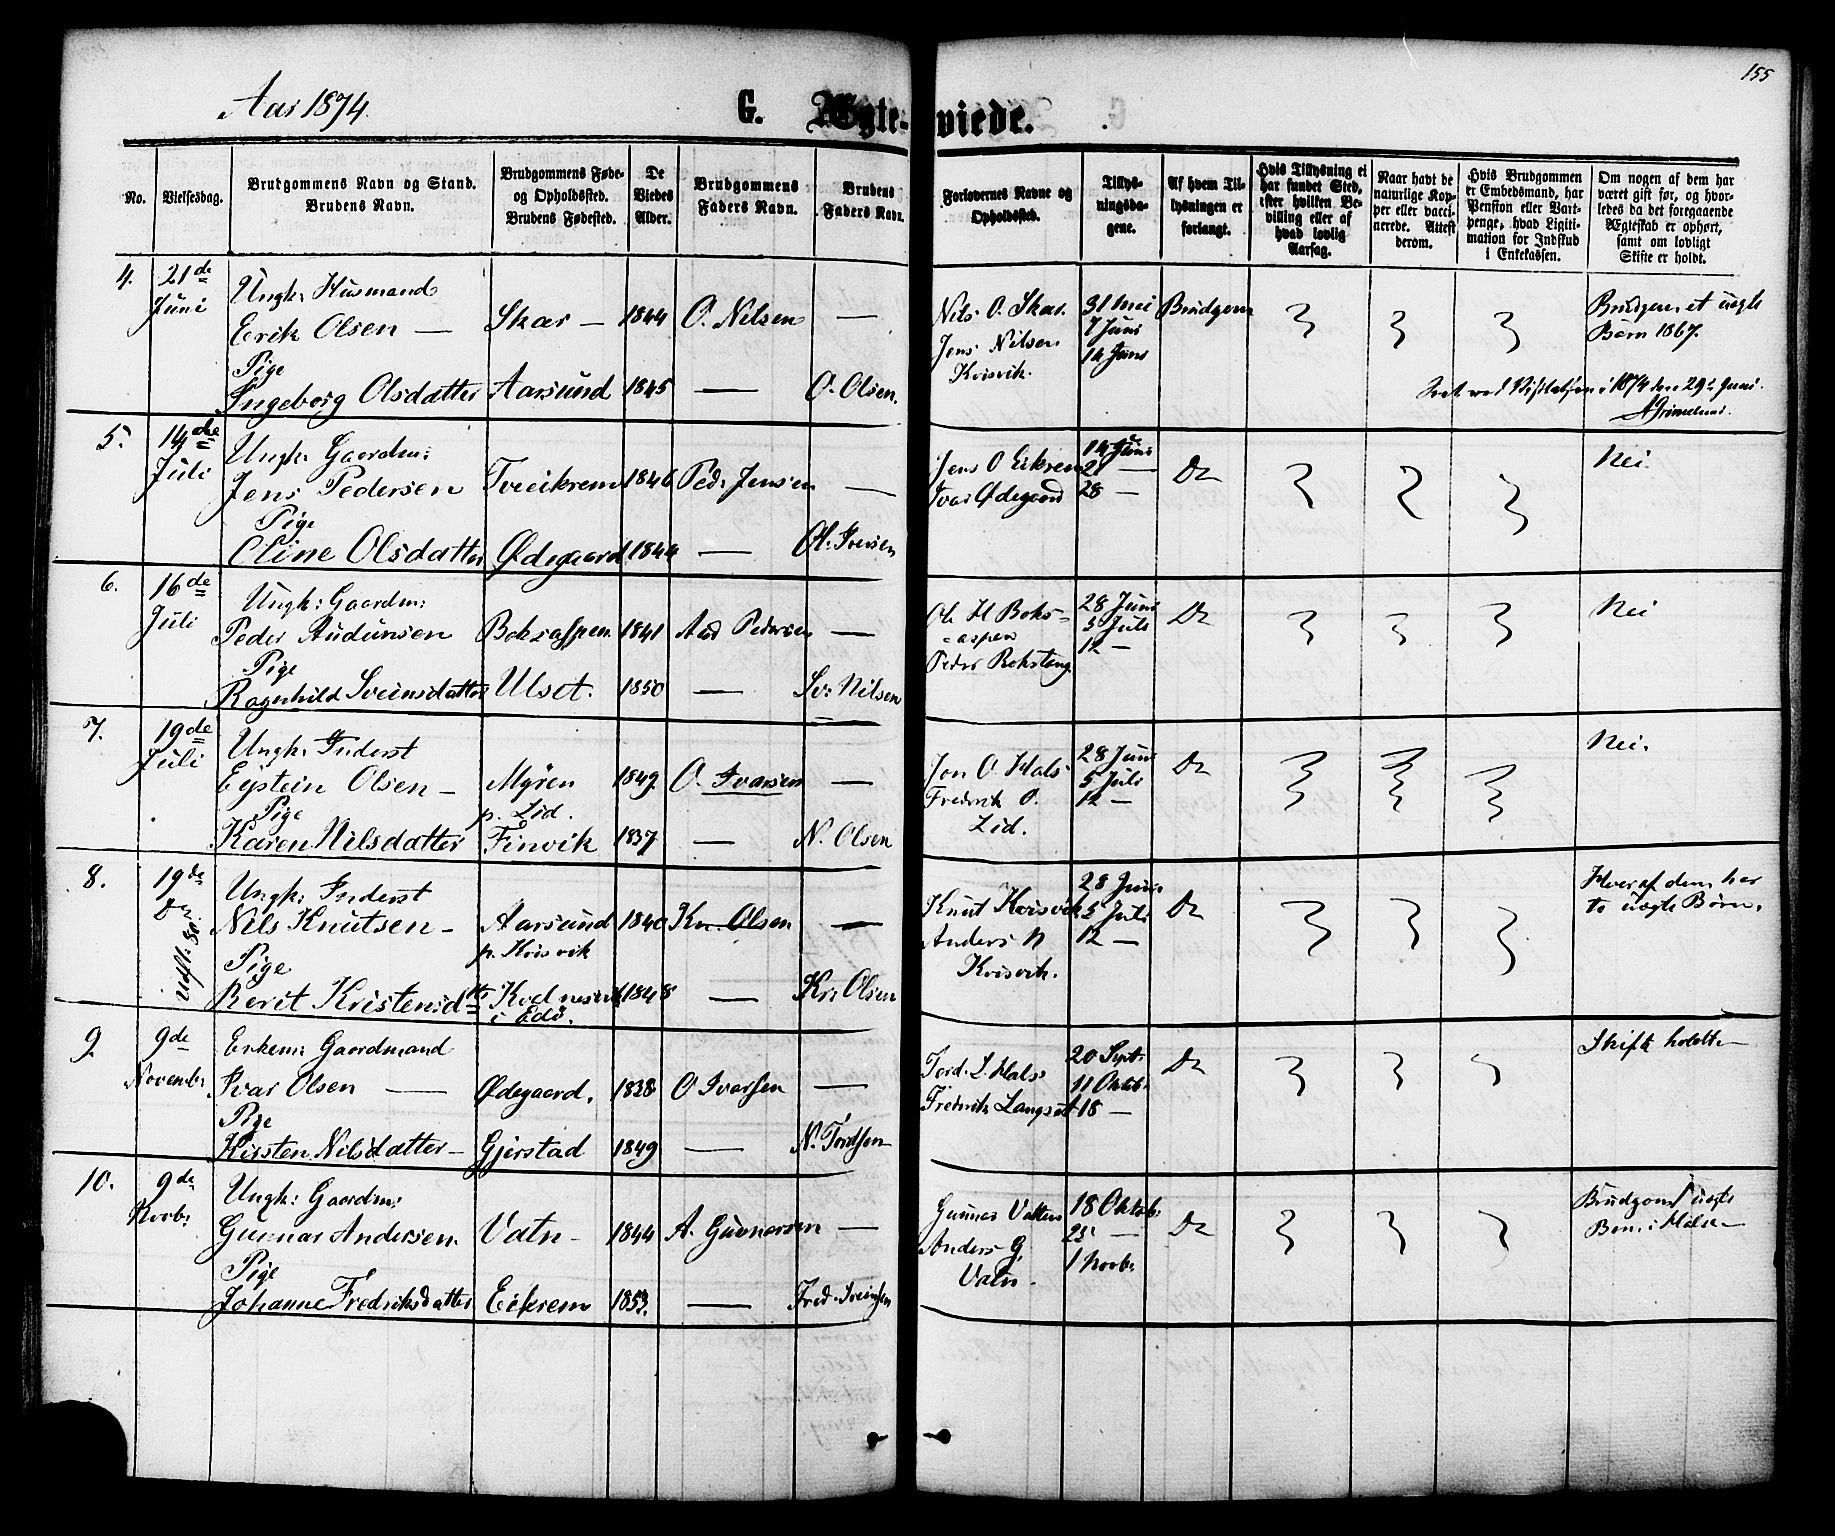 155
Aar 1874.
G. Ægte-viede.
No.
Vielsesdag.
Brudgommens Navn og Stand.
Brudens Navn.
Brudgommens Føde-
og Opholdssted.
Brudens Fødested.
De
Viedes
Alder.
Brudgommens
Faders Navn.
Brudens
Faders Navn.
Forlovernes Navne og
Opholdssted.
Tillys-
ningsda-
gene.
Af hvem Til-
lysningen er
forlangt.
Hvis Tillysning ei
har fundet Sted,
efter hvilken Be-
villing eller af
hvad lovlig
Aarsag.
Naar havt de
naturlige Kop-
per eller vacci-
nerede. Attest
derom.
Hvis Brudgommen
er Embedsmand, har
Pension eller Vart-
penge, hvad Ligiti-
mation for Indskud
i Enkekassen.
Om nogen af dem har
været gift før, og hvor-
ledes da det foregaaende
Ægteskab er ophørt,
samt om lovligt
Skifte er holdt.
4.
21de
Juni
Ungk: Husmand
Erik Olsen — Skar — 1844 O. Nilsen —
Pige
Ingeborg Olsdatter Aarsund 1845 — O. Olsen.
Nils O. Skar.
Jens Nilsen
Kvisvik.
31 Mei
7 Juni
14 Juni
Brudgom
Brudgom et uægte
Barn 1867.
Seet ved Visitatsen i 1874 den 29de Juni.
AGrimelund.
5.
14de
Juli
Ungk: Gaardm:
Jens Pedersen Tveiekrem 1846 Ped. Jensen —
Pige
Oline Olsdatter Ødegaard 1844 — Ol. Iversen
Jens O Eikrem
Ivar Ødegaard
14 Juni
21 —
28 —
Do
Nei.
6.
16de
Juli
Ungk: Gaardm:
Peder Audunsen Boksaspen. 1841 Aud Pedersen —
Pige
Ragnhild Sveinsdatter Ulset. 1850 — Sv: Nilsen
Ole H Boks-
-aspen
Peder Bokstang
28 Juni
5 Juli
12 —
Do
Nei
7.
19de
Juli
Ungk: Inderst
Eystein Olsen — Myren 1849. O. Ivarsen —
Pige p. Lid.
Karen Nilsdatter Finvik 1837 — N. Olsen
Jon O. Hals
Fredrik O.
Lid.
28 Juni
5 Juli
12 —
Do
Nei.
8.
19de
Do
Ungk: Inderst
Nils Knutsen — Aarsund 1840 Kn. Olsen —
Pige p. Kvisvik
Berit Kristensdtr Kvelnesvik 1848 — Kr: Olsen
i Edö.
Knut Kvisvik
Anders N
Kvisvik.
28 Juni
5 Juli
12 —
Do
Hver af dem har
to uægte Børn.
9.
9de
Novemb:
Enkem: Gaardmand
Ivar Olsen — Ødegaard. 1838 O Ivarsen —
Pige
Kirsten Nilsdatter — Gjerstad 1849 — N. Tordsen
Tord. L. Hals
Fredrik Langset
20 Sept.
11 Oktob.
18 —
Do
Skifte holdt —
10.
9de
Novb:
Ungk: Gaardm:
Gunnar Andersen. Vatn — 1844 A. Gunnarsen —
Pige
Johanne Fredriksdatter Eikrem 1853. — Fred. Sveinsen
Gunnar Vatten
Anders G.
Vatn.
18 Oktob:
25 —
1 Novb:
Do
Brudgom 1 uægte
Barn i Halse —